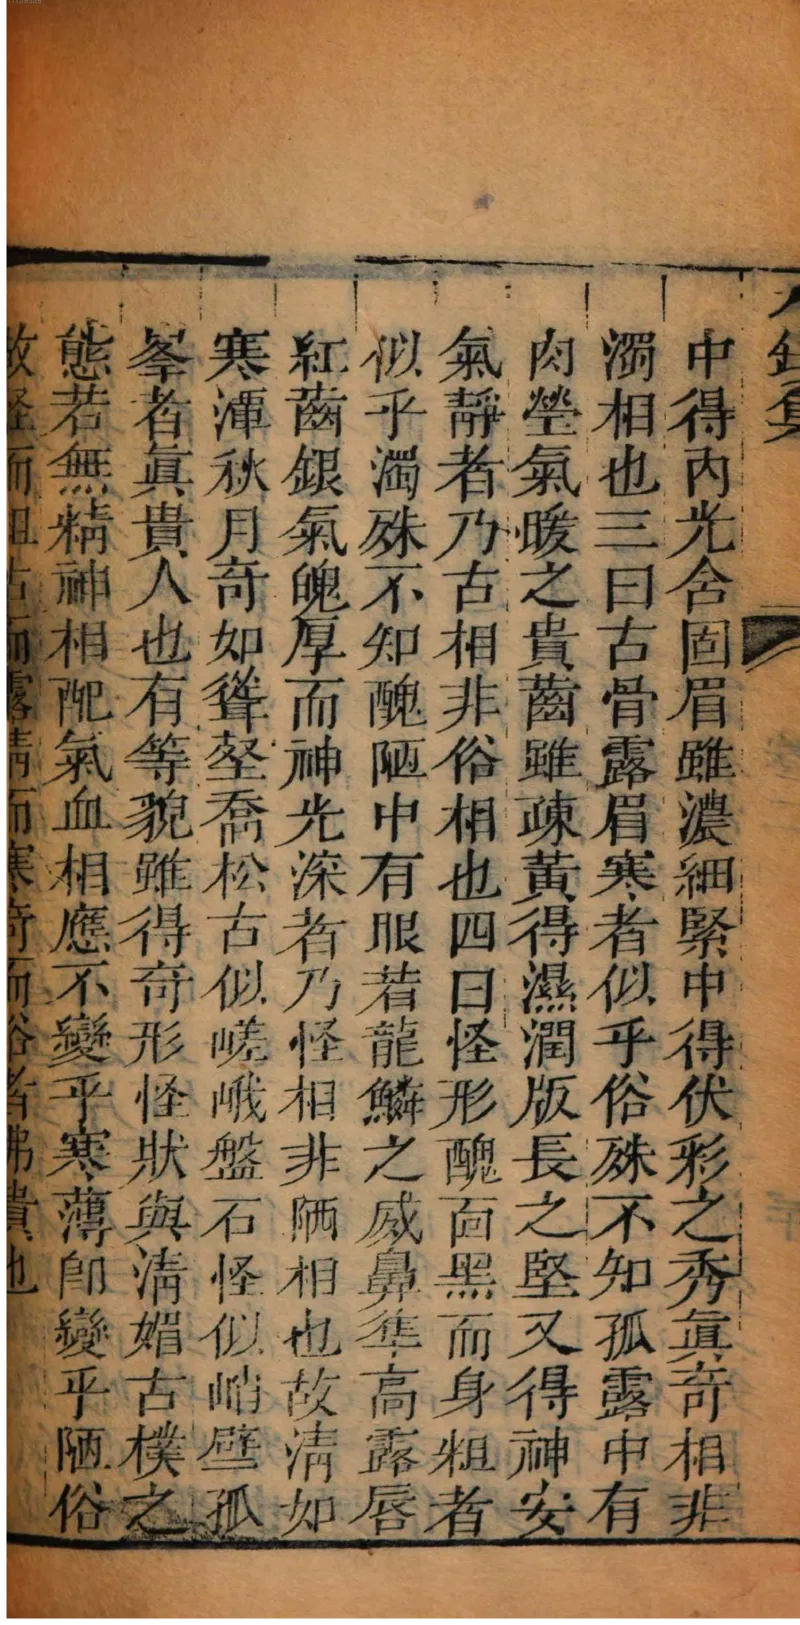 中得內光含固眉雖濃細緊中得伏彩之秀眞奇相非
濁相也三曰古骨露眉寒者似乎俗殊不知孤露中有
肉瑩氣暖之貴齒雖疎黃得濕潤版長之堅又得神安
氣靜者乃古相非俗相也四曰怪形醜面黑而身粗者
似乎濁殊不知醜陋中有眼若龍鱗之威鼻準高露唇
紅齒銀氣魄厚而神光深者乃怪相非陋相也故清如
寒潭秋月奇如聳壑喬松古似嵯峨盤石怪似峭壁孤
峯者眞貴人也有等貌雖得奇形怪狀與淸媚古樸之
態若無精神相配氣血相應不變乎寒薄卽變乎陋俗
故怪而粗古而露清而寒奇而俗者弗貴也